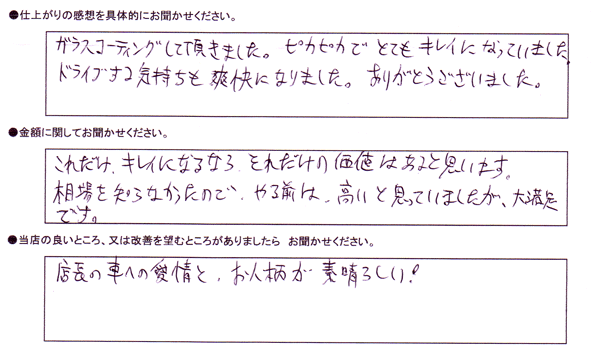 ●仕上がりの感想を具体的にお聞かせください。
ガラスコーティングして頂きました。ピカピカでとてもキレイになっていました。
ドライブする気持ちも爽快になりました。ありがとうございました。
●金額に関してお聞かせください。
これだけ、キレイになるなら、それだけの価値はあると思います。
相場を知らなかったので、やる前は、高いと思っていましたが、大満足
です。
●当店の良いところ、又は改善を望むところがありましたら お聞かせください。
店長の車への愛情と、お人柄が素晴らしい!